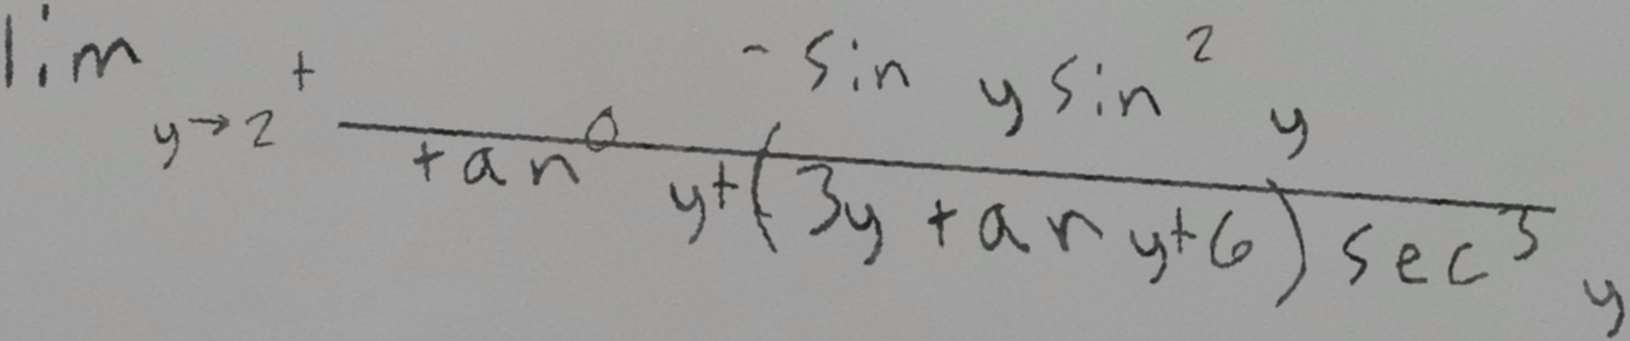 \lim_{y \to 2^+} \frac{-\sin y \sin^2 y}{\tan^0 y + (3y \tan y + 6) \sec^5 y}